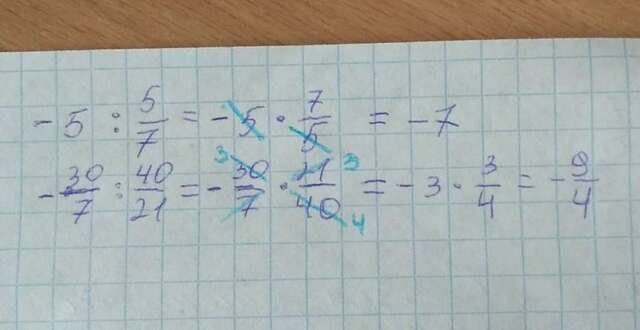 -5 : 5/7 = -5 · 7/5 = -7
-30/7 : 40/21 = -30/7 · 21/40 = -3 · 3/4 = -9/4
3 3 4